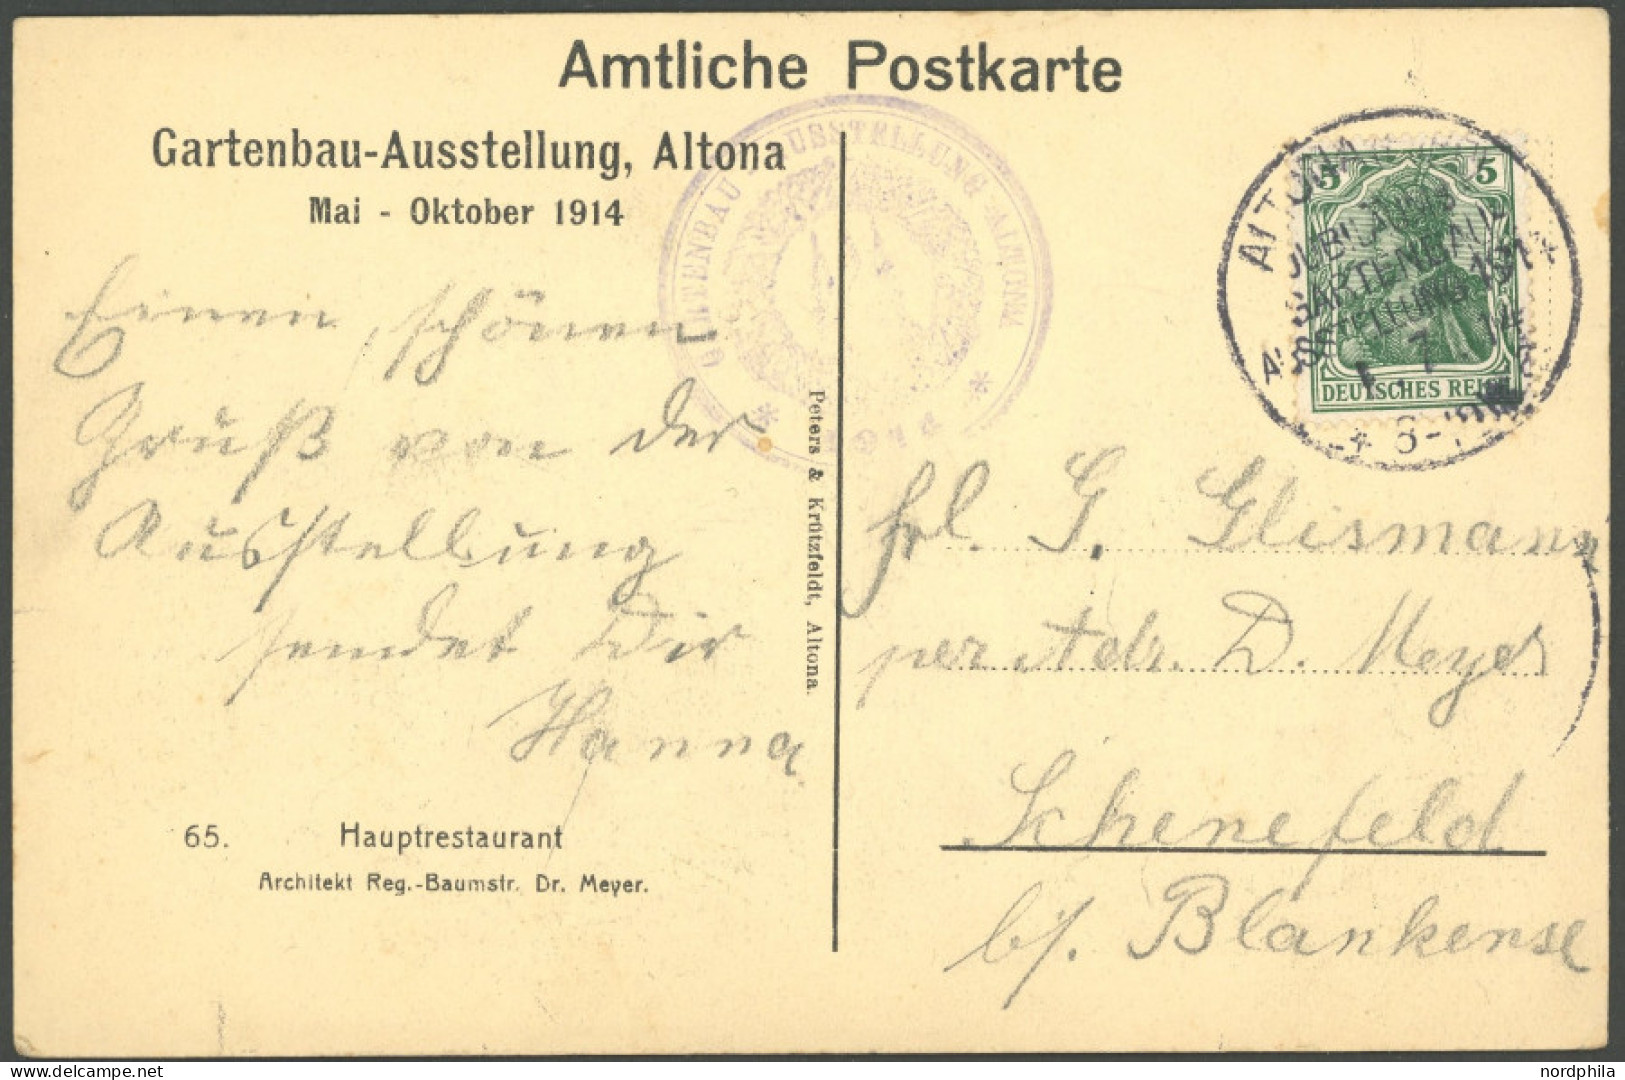 Amtliche Postkarte
Gartenbau-Ausstellung, Altona
Mai - Oktober 1914
Einen schönen
Gruß von der
Ausstellung
sendet Dir
Hanna
65. Hauptrestaurant
Architekt Reg.-Baumstr. Dr. Meyer.
Peters & Krützfeldt, Altona.
GARTENBAU AUSSTELLUNG ALTONA
* 1914 *
5 5
DEUTSCHES REICH
ALTONA
JUBILÄUMS
GARTENBAU
AUSSTELLUNG 1914
7. 14
Frl. G. Glismann
per Adr. D. Meyer
Schenefeld
b/. Blankenese
nordphila